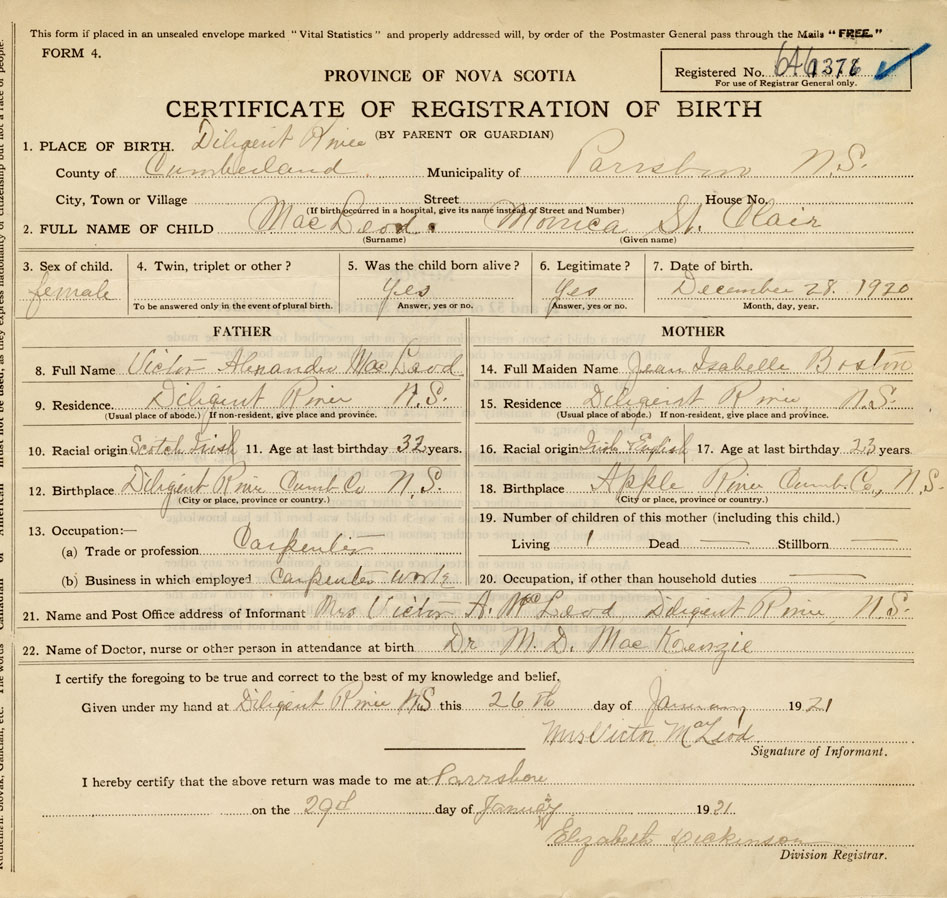 This form if placed in an unsealed envelope marked "Vital Statistics" and properly addressed will, by order of the Postmaster General pass through the Mails "FREE."
FORM 4.
Registered No. 6461378
For use of Registrar General only.
PROVINCE OF NOVA SCOTIA
CERTIFICATE OF REGISTRATION OF BIRTH
(BY PARENT OR GUARDIAN)
1. PLACE OF BIRTH. Diligent River
County of Cumberland Municipality of Parrsboro N.S.
City, Town or Village Street House No.
(If birth occurred in a hospital, give its name instead of Street and Number)
2. FULL NAME OF CHILD MacLeod. Monica St. Clair
(Surname) (Given name)
3. Sex of child. 4. Twin, triplet or other? 5. Was the child born alive? 6. Legitimate? 7. Date of birth.
female Yes Yes December 28. 1920
To be answered only in the event of plural birth. Answer, yes or no. Answer, yes or no. Month, day, year.
FATHER
8. Full Name Victor Alexander MacLeod
9. Residence. Diligent River N.S.
(Usual place of abode.) If non-resident, give place and province.
10. Racial origin Scotch Irish 11. Age at last birthday 32 years.
12. Birthplace Diligent River Cumb. Co N.S.
(City or place, province or country.)
13. Occupation:—
(a) Trade or profession Carpenter
(b) Business in which employed Carpenter work
MOTHER
14. Full Maiden Name Jean Isabelle Boston
15. Residence Diligent River, N.S.
(Usual place of abode.) If non-resident, give place and province.
16. Racial origin Irish English 17. Age at last birthday 23 years.
18. Birthplace Apple River Cumb. Co., N.S
(City or place, province or country.)
19. Number of children of this mother (including this child.)
Living 1 Dead — Stillborn —
20. Occupation, if other than household duties —
21. Name and Post Office address of Informant Mrs Victor A. MacLeod, Diligent River, N.S.
22. Name of Doctor, nurse or other person in attendance at birth Dr M. D. MacKenzie
I certify the foregoing to be true and correct to the best of my knowledge and belief.
Given under my hand at Diligent River N.S this 26th day of January 1921
Mrs Victor MacLeod
Signature of Informant.
I hereby certify that the above return was made to me at Parrsboro
on the 29th day of January 1921.
Elizabeth Dickinson
Division Registrar.